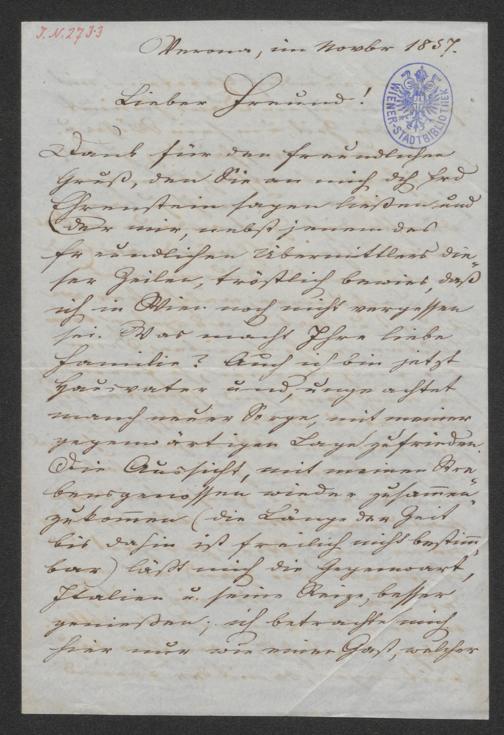 J.N. 2733
Verona, im Novbr 1857.
WIENER-STADTBIBLIOTHEK
Lieber Freund!
Dank für den freundlichen
Gruß, den Sie an mich dch Erd
Ehrenstein sagen ließen und
(der mir, nebst jenem des
freundlichen Übermittlers die-
ser Zeilen, tröstlich bewies, daß
ich in Wien noch nicht vergessen
sei. Was macht Ihre liebe
Familie? Auch ich bin jetzt
Hausvater und, ungeachtet
manch neuer Sorge, mit meiner
gegenwärtigen Lage zufrieden.
Die Aussicht, mit meinen Stre
bensgenossen wieder zusammen-
zukommen (die Länge der Zeit
bis dahin ist freilich nicht bestimm
bar) läßt mich die Gegenwart,
Italien u. seine Reize, besser
genießen; ich betrachte mich
hier nur wie einen Gast, welcher